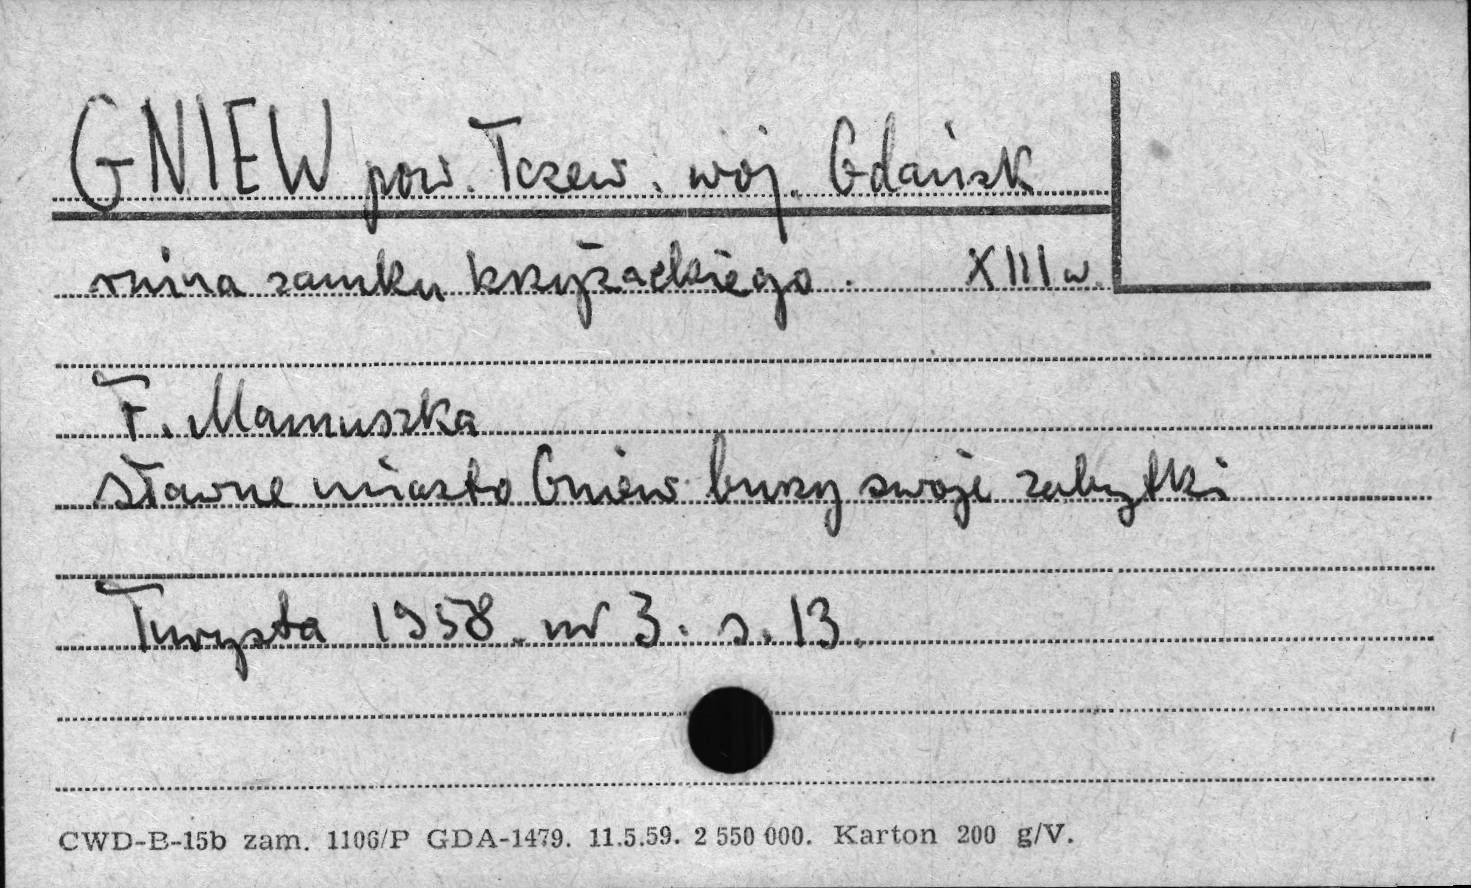 GNIEW pow. Tczew. woj. Gdańsk
ruina zamku krzyżackiego. XIII w.
F. Mamuszka
Sławne miasto Gniew burzy swoje zabytki
Turysta 1958. nr 3. s. 13.
CWD-B-15b zam. 1106/P GDA-1479. 11.5.59. 2 550 000. Karton 200 g/V.